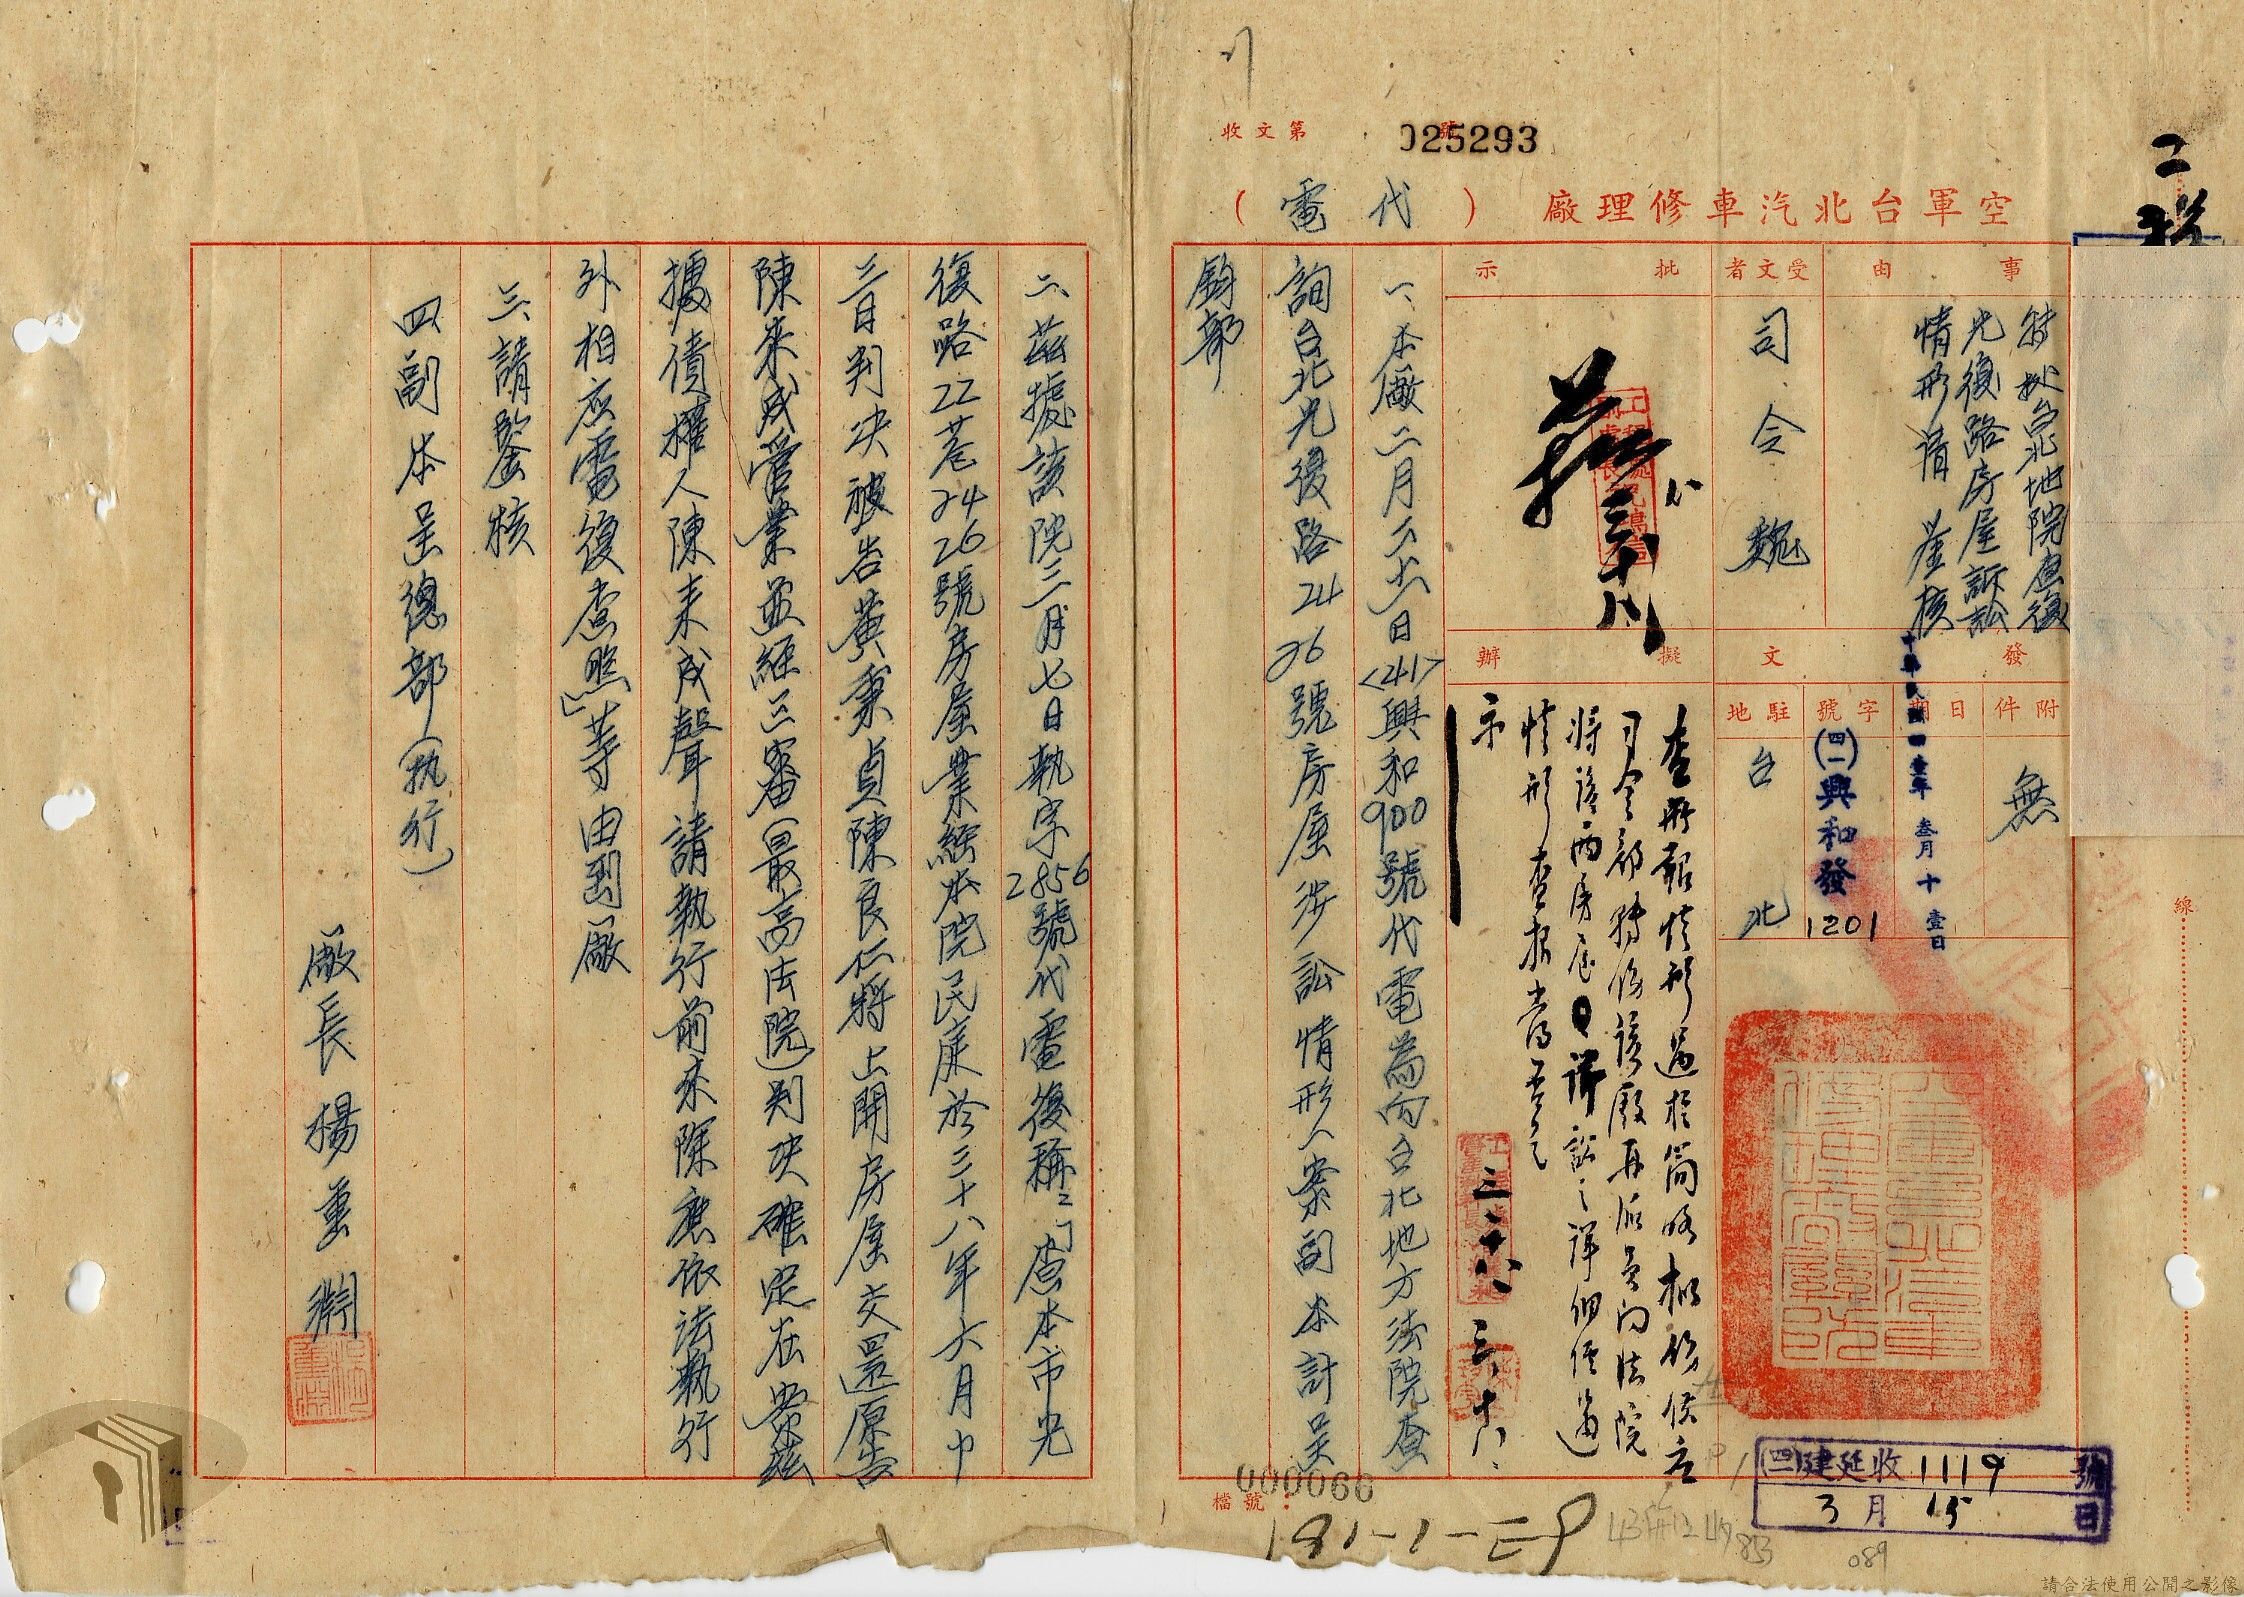 收文第 號
025293
空軍台北汽車修理廠（代電）
事由
特抄台北地院查復
光復路房屋訴訟
情形請 鑒核
受文者
司令魏
批示
發文
附件
無
日期
中華民國四十壹年叁月十壹日
字號
(四一)興和發
1201
駐地
台北
擬辦
查所報情形過於簡略擬飭
司令部轉飭該廠再派員向法院
將該兩房屋
情形查報
示
一、本廠二月
日<41>興和900號代電為向台北地方法院查
詢台北光復路24
26號房屋涉訟情形一案副本計呈
鈞部
二、茲據該院三月七日執字2856號代電復稱：「查本市光
復路22巷24 26號房屋業經本院民庭於三十八年六月中
三日判決被告黃秉貞陳良仁將上開房屋交還原告
陳來成管業並經三審(最高法院)判決確定在案茲
據債權人陳來成聲請執行前來除應依法執行
外相應電復查照」等由到廠
三、請鑒核
四、副本呈總部(執行)
廠長楊重
(四一)建延收1119號
3月15日
檔號：
000060
181-1-
線
089
請合法使用公開之影像